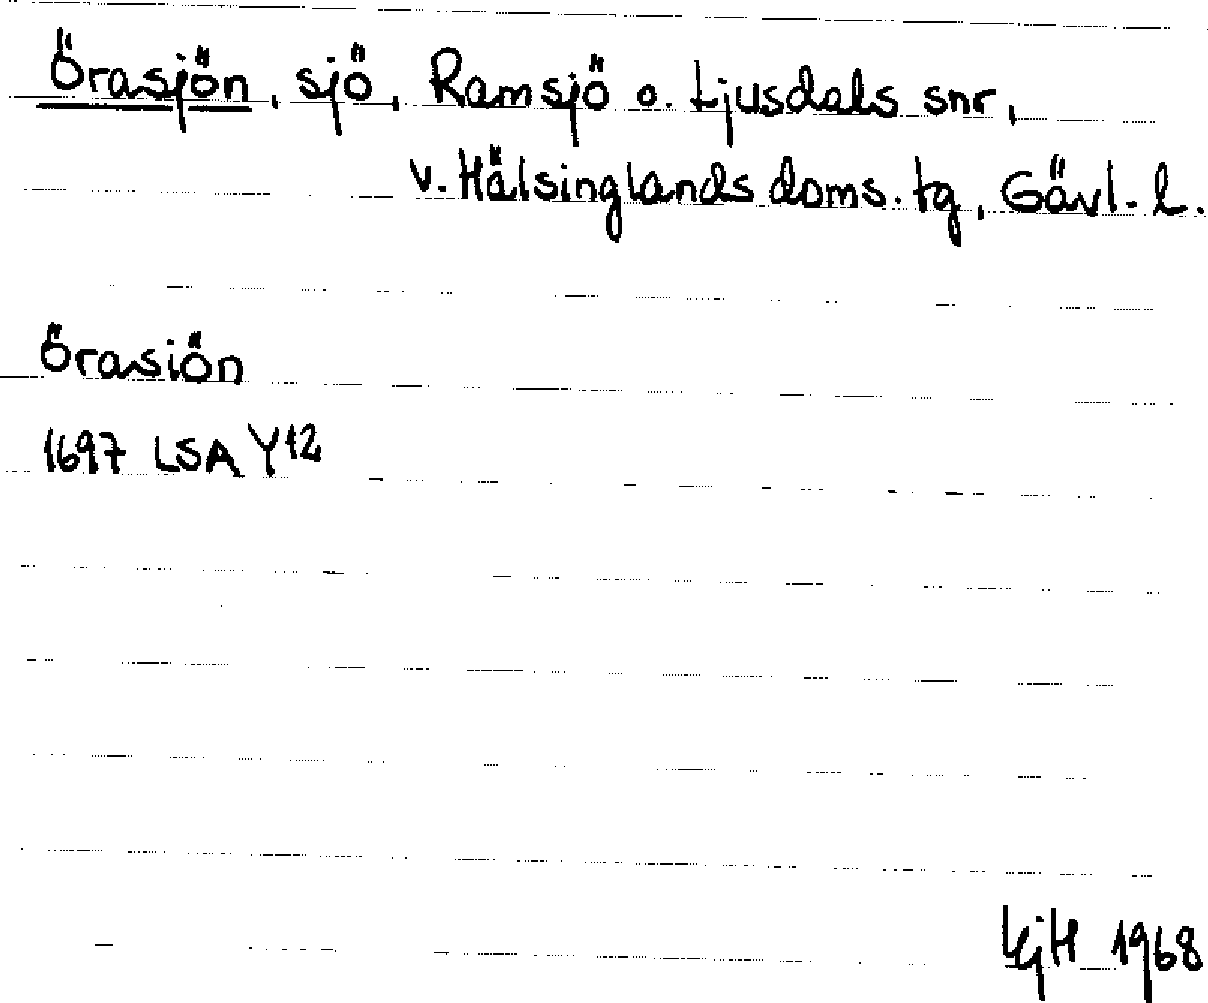 Örasjön, sjö, Ramsjö o. Ljusdals snr,
v. Hälsinglands doms. tg, Gävl. l.
Örasiön
1697 LSA Y12
1968